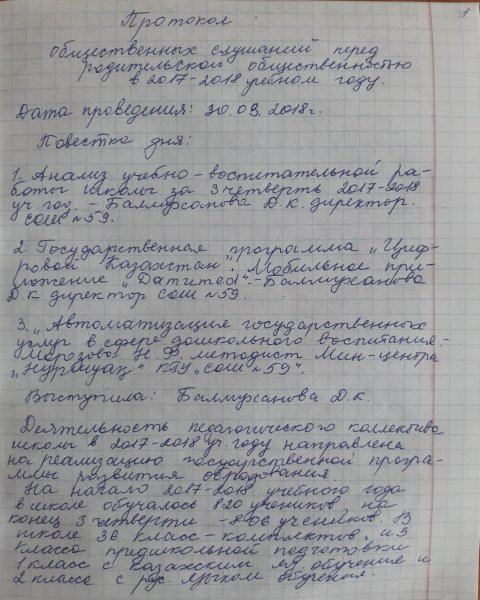 Протокол
общественных слушаний перед
родительской общественностью
в 2017-2018 учебном году.
Дата проведения: 30.03.2018г.
Повестка дня:
1. Анализ учебно-воспитательной ра-
боты школы за 3 четверть 2017-2018
уч. год. - Балмусанова Д.К. директор.
СОШ №59.
2. Государственная программа "Циф-
ровой Казахстан". Мобильное при-
ложение "Damumed" - Балмусанова
Д.К директор СОШ №59.
3. "Автоматизация государственных
услуг в сфере дошкольного воспитания -
Морозова Н.Ф. методист Мин-центра
"Нұршуақ" КГУ "СОШ №59".
Выступила: Балмусанова Д.К.
Деятельность педагогического коллектива
школы в 2017-2018 уч. году направлена
на реализацию государственной програм-
мы развития образования
На начало 2017-2018 учебного года
в школе обучалось 820 учеников на
конец 3 четверти - 806 учеников. В
школе 36 класс-комплектов, и 3
класса предшкольной подготовки
1 класс с казахским яз. обучение и
2 класса с рус. языком обучения.